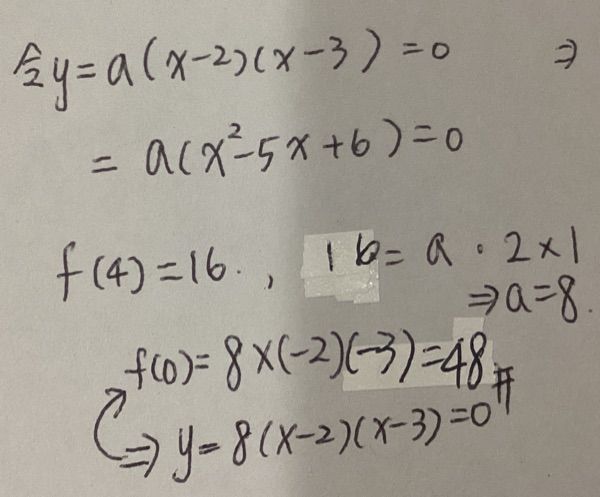 令y=a(x-2)(x-3)=0 ⇒
=a(x²-5x+6)=0
f(4)=16. , 16=a·2×1
⇒a=8.
f(0)=8×(-2)(-3)=48#
⇒y=8(x-2)(x-3)=0